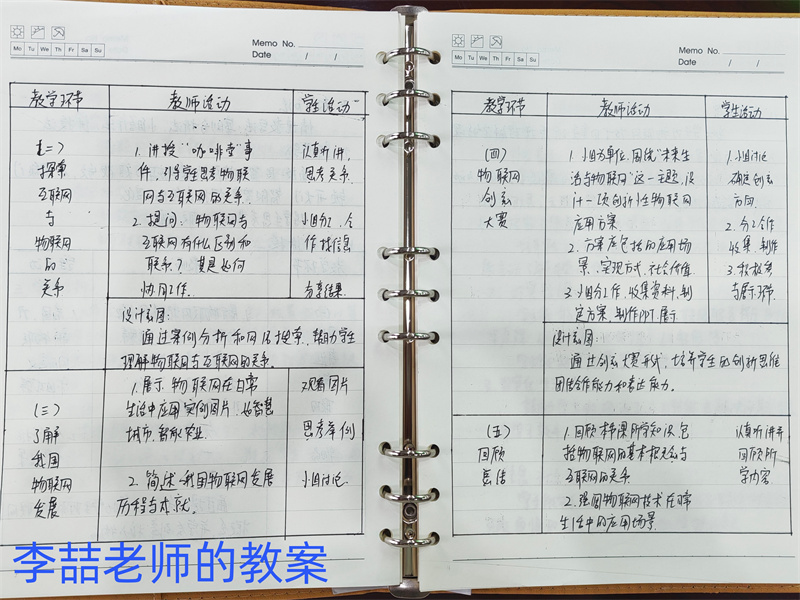 Mo Tu We Th Fr Sa Su
Memo No.
Date / /
教学环节 教师活动 学生活动
(二)
探索
互联网
与
物联网
的
关系
1. 讲授"咖啡壶"事
件,引导学生思考物联
网与互联网的关系.
2. 提问:物联网与
互联网有什么区别和
联系?其是如何
协同工作.
认真听讲,
思考关系.
小组分工,合
作找信息
分享结果.
设计意图:
通过案例分析和网络搜索,帮助学生
理解物联网与互联网的关系.
(三)
了解
我国
物联网
发展
1. 展示物联网在日常
生活中应用实例图片,如智慧
城市,智能农业.
2. 简述我国物联网发展
历程与成就.
观看图片
思考举例
小组讨论.
Mo Tu We Th Fr Sa Su
Memo No.
Date / /
教学环节 教师活动 学生活动
(四)
物联网
创意
大赛
1. 小组为单位,围绕"未来生
活与物联网"这一主题,设
计一项创新性物联网
应用方案.
2. 方案应包括的应用场
景、实现方式、社会价值
3. 小组分工,收集资料,制
定方案,制作PPT,展示
1. 小组讨论
确定创意
方向.
2. 分工合作
收集、制作
3.
与展示环节.
设计意图:
通过创意大赛形式,培养学生的创新思维
团结合作能力和表达能力。
(五)
回顾
总结
1. 回顾本节课所学知识,包
括物联网的基本概念与
互联网的关系
2. 强调物联网技术在日常
生活中的应用场景.
认真听讲并
回顾所
学内容.
李喆老师的教案